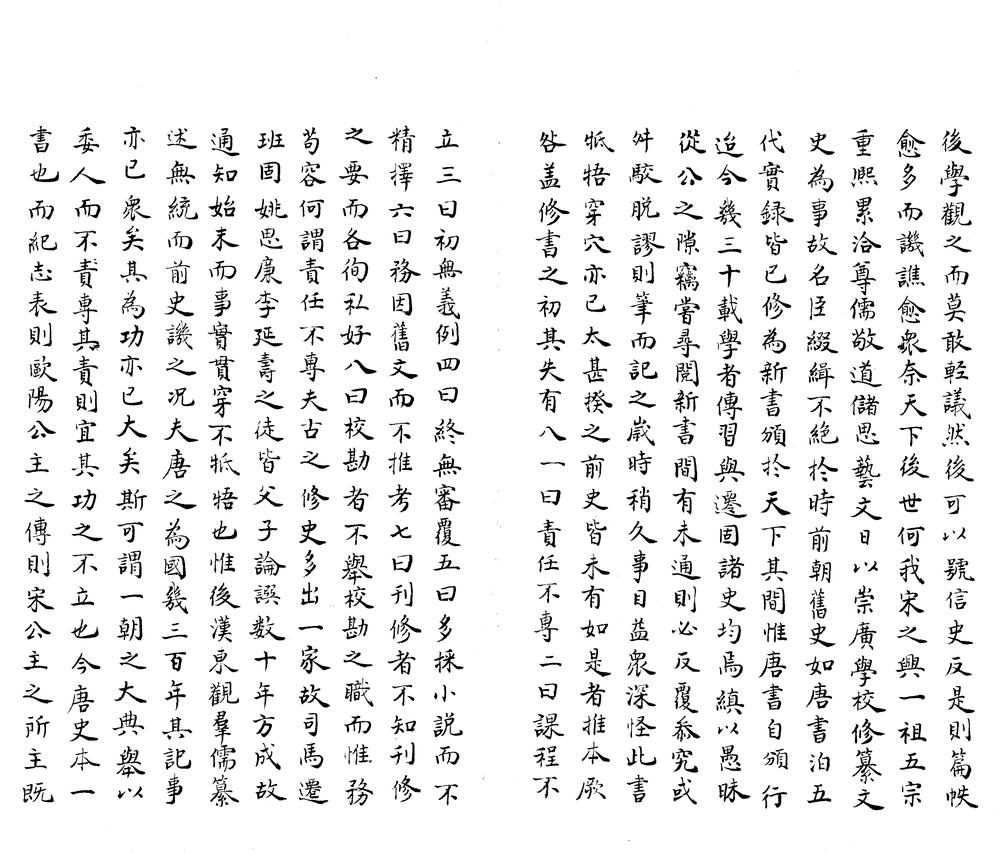 後學觀之而莫敢輕議然後可以號信史反是則篇帙
愈多而譏譙愈衆奈天下後世何我宋之興一祖五宗
重熙累洽尊儒敬道儲思藝文日以崇廣學校修纂文
史為事故名臣綴緝不絕於時前朝舊史如唐書洎五
代實録皆已修為新書頒於天下其間惟唐書自頒行
迨今幾三十載學者傳習與遷固諸史均焉縝以愚昧
從公之隙竊嘗尋閱新書間有未通則必反覆叅究或
舛駮脱謬則筆而記之歲時稍久事目益衆深怪此書
牴牾穿穴亦已太甚揆之前史皆未有如是者推本厥
咎盖修書之初其失有八一曰責任不專二曰課程不
立三曰初無義例四曰終無審覆五曰多採小説而不
精擇六曰務因舊文而不推考七曰刊修者不知刊修
之要而各徇私好八曰校勘者不舉校勘之職而惟務
苟容何謂責任不專夫古之修史多出一家故司馬遷
班固姚思廉李延壽之徒皆父子論譔数十年方成故
通知始末而事實貫穿不牴牾也惟後漢東觀羣儒纂
述無統而前史譏之况夫唐之為國幾三百年其記事
亦已衆矣其為功亦已大矣斯可謂一朝之大典舉以
委人而不責專其責則宜其功之不立也今唐史本一
書也而紀志表則歐陽公主之傳則宋公主之所主既